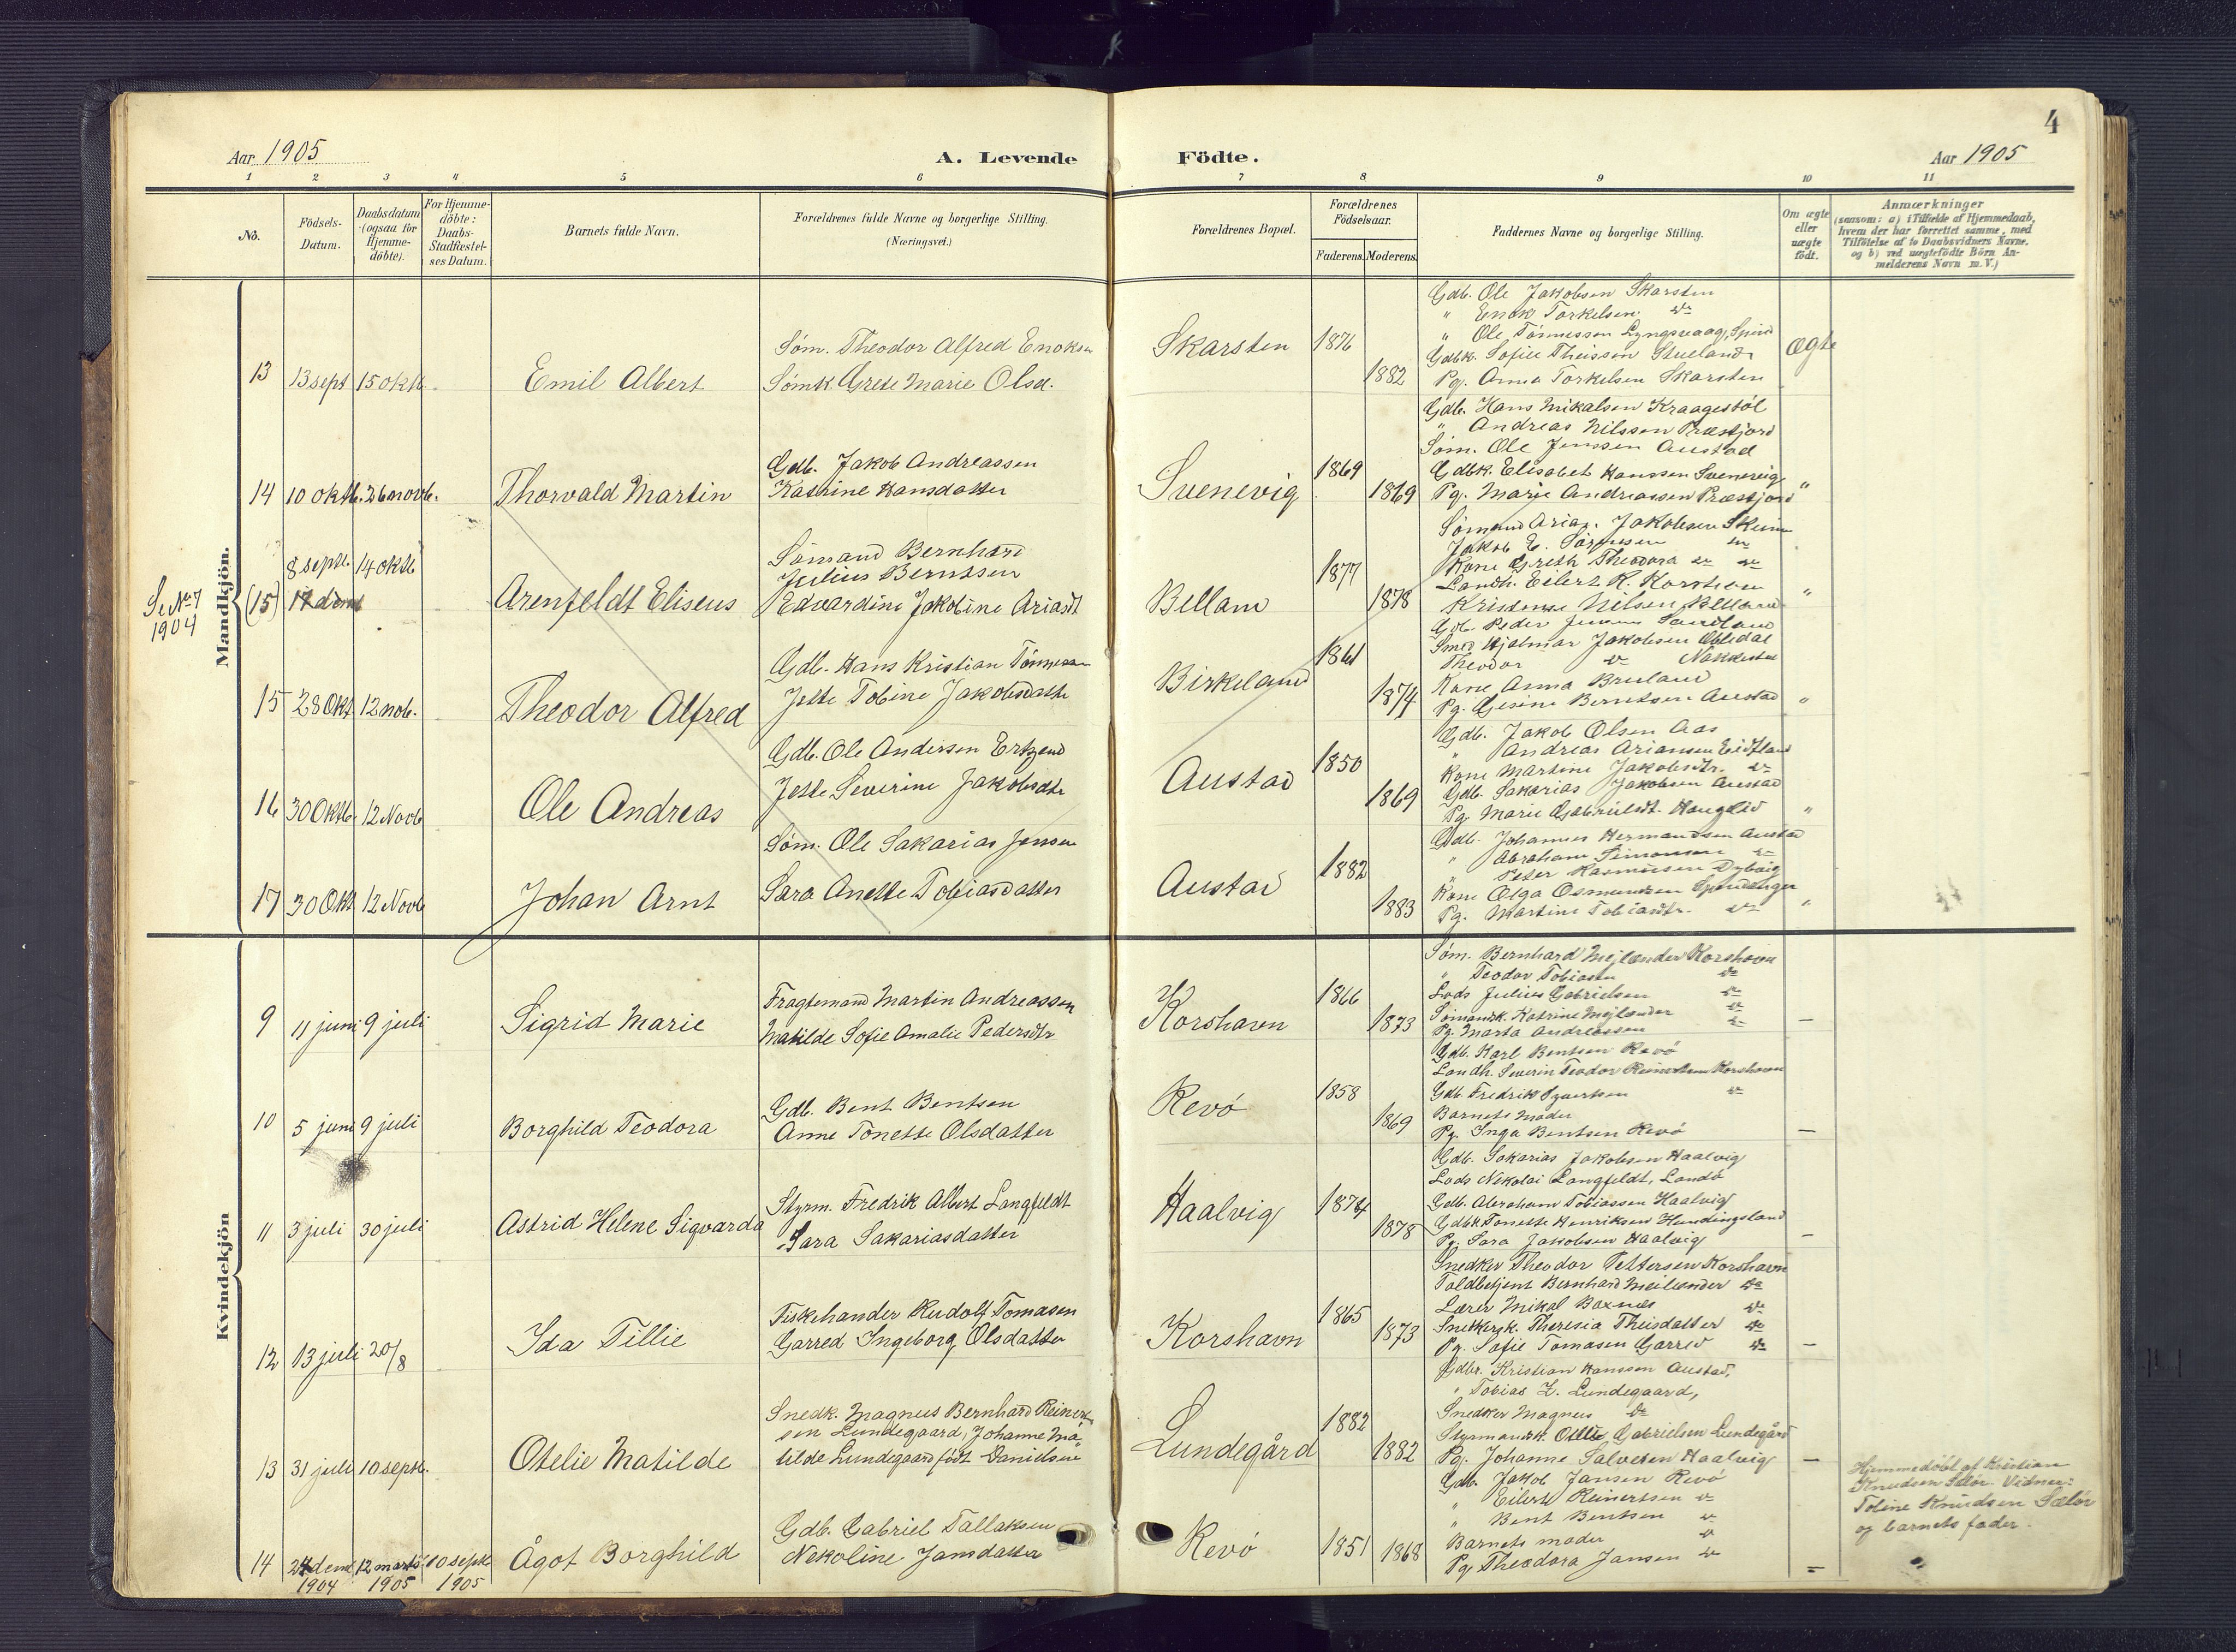 4
Aar 1905
A. Levende Födte.
Aar 1905
1 2 3 4 5 6 7 8 9 10 11
No.
Födsels-
Datum.
Daabsdatum
(ogsaa for
Hjemme-
döbte).
For Hjemme-
döbte:
Daabs-
Stadfæstel-
ses Datum.
Barnets fulde Navn.
Forældrenes fulde Navne og borgerlige Stilling.
(Næringsvei.)
Forældrenes Bopæl.
Forældrenes
Födselsaar.
Faderens. Moderens.
Faddernes Navne og borgerlige Stilling.
Om ægte
eller
uægte
födt.
Anmærkninger
(saasom: a) i Tilfælde af Hjemmedaab,
hvem der har forrettet samme, med
Tilföielse af to Daabsvidners Navne,
og b) ved uægtefödte Börn An-
melderens Navn m. V.)
Mandkjön.
13 13 sept 15 oktb. Emil Albert
Søm. Theodor Alfred Enoksen
Sømk. Grete Marie Olsd.
Skarsten 1876 1882
Gdb. Ole Jakobsen Skarsten
" Enok Torkelsen do
" Ole Tønnessen Lyngsvaag, Spind
Gdbk. Sofie Theissen Stueland
Pg. Anna Torkelsen Skarsten
Ægte
14 10 oktb. 26 novb. Thorvald Martin
Gdb. Jakob Andreassen
Katrine Hansdatter
Svenevig 1869 1869
Gdb. Hans Mikalsen Kraagestøl
" Andreas Nilssen Præstjord
Søm. Ole Jenssen Austad
Gdbk. Elisabet Hanssen Svenevig
Pg. Marie Andreassen Præstjord "
Se No 7
1904
(15) 8 septb. 14 oktb
Arenfeldt Eliseus
Sømand Bernhard
Julius Berntsen
Edvardine Jakobine Ariasdt
Bellam 1877 1878
Sømand Arias. Jakobsen Skeime
Jakob E. do
Kone Greth Theodora do do
Landh. Eilert R. Korshavn
Nilsen Bellam "
15 28 Okt. 12 nob. Theodor Alfred
Gdb. Hans Kristian Tønnesen
Jette Tobine Jakobsdatte
Birkeland 1861 1874
Gdb. Peder Jensen
Smed Hjalmar Jakobsen
Theodor do
Kone Anna Bruland
Pg. Gesine Berntsen Austad "
16 30 Oktb. 12 Novb Ole Andreas
Gdb. Ole Andersen
Jette Severine Jakobsdtr
Austad 1850 1869
Gdb. Jakob Olsen Aas
" Andreas Ariansen Eidsland
Kone Martine Jakobsdtr. do
Gdb. Sakarias Jakobsen Austad
Pg. Marie Gabrielsdt. Haugland "
17 30 Okt 12 Novb Johan Arnt
Søm. Ole Sakarias Jensen
Sara Anette Tobiasdatter
Austad 1882 1883
Gdb. Johannes Hermandsen Austad
" Abraham Simonsen do
" Peter Rasmussen Dybvig
Kone Olga Osmundsen
Pg. Martine Tobiasdtr. do "
Kvindekjön
9 11 juni 9 juli Sigrid Marie
Fragtemand Martin Andreassen
Matilde Sofie Amalie Pedersdtr
Korshavn 1866 1873
Søm. Bernhard Mejlænder Korshavn
" Teodor Tobiassen do
Lods Julius Gabrielsen do
Sømandsk. Katrine Mejlænder do
Pg. Marta Andreassen do —
10 5 juni 9 juli Borghild Teodora
Gdb. Bent Bentsen
Anne Tonette Olsdatter
Revø 1858 1869
Gdb. Karl Bentsen Revø
Landh. Severin Teodor Reinertsen Korshavn
Gdb. Fredrik Syvertsen do
Barnets moder
Pg. Inga Bentsen Revø —
11 3 juli 30 juli Astrid Helene Sigvarda
Styrm. Fredrik Albert Langfeldt
Sara Sakariasdatter
Haalvig 1874 1878
Gdb. Sakarias Jakobsen Haalvig
Lods Nikolai Langfeldt, Landø
Gdb. Abraham Tobiassen Haalvig
Gdbk. Tonette Henriksen Hundingsland
Pg. Sara Jakobsen Haalvig —
12 13 juli 20/8 Ida Tillie
Fiskehander Rudolf Tomasen
Garred Ingeborg Olsdatter
Korshavn 1865 1873
Snedker Theodor Pettersen Korshavn
Toldbetjent Bernhard Meilænder do
Lærer Mikal Boxnæs do
Snekkerk. Theresia Theisdatter do
Pg. Sofie Tomasen Garred do —
13 31 juli 10 septb. Otelie Matilde
Snedk. Magnus Bernhard Reinert-
sen Lundegaard, Johanne Ma-
tilde Lundegaard født Danielsen
Lundegård 1882 1882
Gdbr. Kristian Hanssen Austad,
" Tobias Z. Lundegaard,
Snedker Magnus do
Styrmandsk. Otilie Gabrielsen Lundegård
Pg. Johanne Salvesen Haalvig —
14 24 decmb 1904 12 marts 1905 10 septb 1905 Ågot Borghild
Gdb. Gabriel Tallaksen
Nekoline Jansdatter
Revø 1851 1868
Gdb. Jakob Jansen Revø
" Eilert Reinertsen do
" Bent Bentsen do
Barnets moder do
Pg. Theodora Jansen do —
Hjemmedøbt af Kristian
Knudsen Sælør. Vidner:
Toline Knudsen Sælør
og barnets fader.